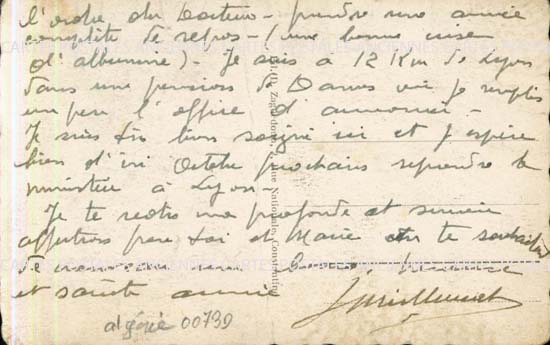 l'ordre du Docteur - prendre une année
complète de repos - (une bonne crise
d'albumine) - Je suis à 12 Km de Lyon
dans une pension de Dames où je remplis
un peu l'office d'aumonier -
Je suis très bien soigné ici et j'espère
bien d'ici Octobre prochain reprendre le
ministère à Lyon -
Je te redis ma profonde et sincère
affection pour toi et Marie et te souhaite
de nouveau une bonne, heureuse
et sainte année
algérie 00739
Zagdoun, Rue Nationale, Constantine
CARTES POSTALES ANCIENNES